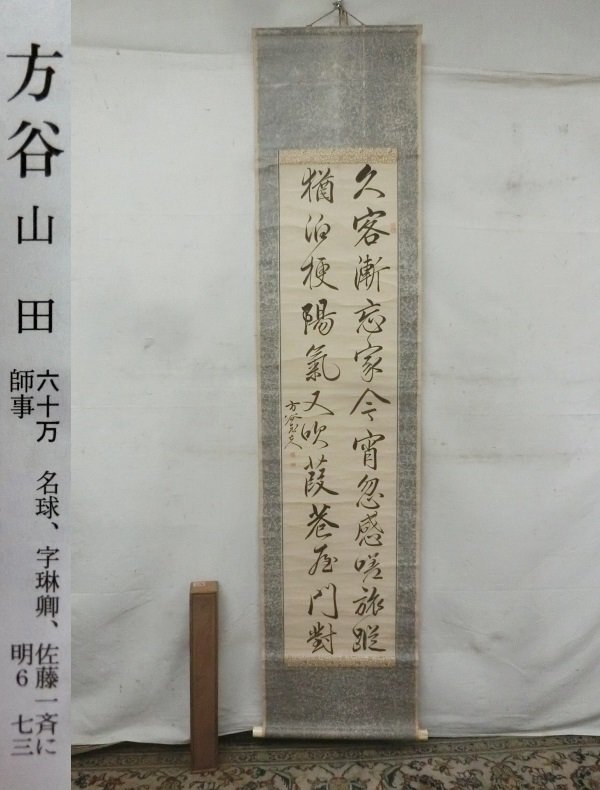 方谷山田
六十万 名球、字琳卿、佐藤一斉に
師事 明6 七三
久客漸忘家今宵忽感嗟旅蹤
猶泊梗陽氣又吹葭巷在門對
方谷